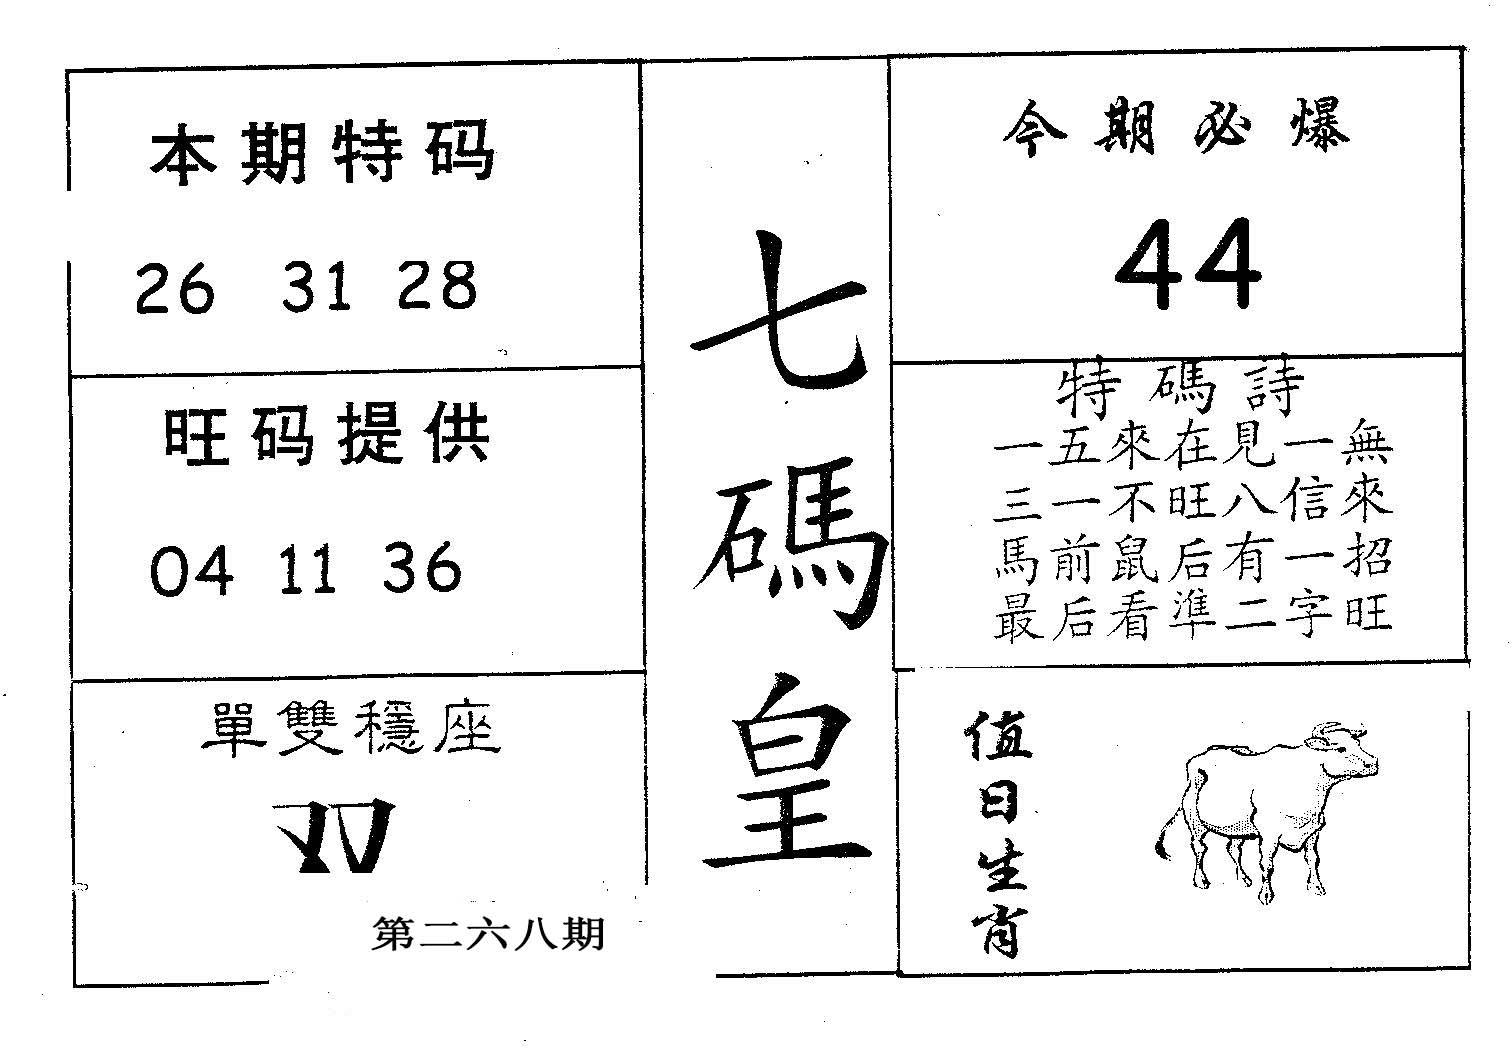 本期特码
26 31 28
旺码提供
04 11 36
單雙穩座
双
第二六八期
七碼皇
今期必爆
44
特碼詩
一五來在見一無
三一不旺八信來
馬前鼠后有一招
最后看準二字旺
值日生肖